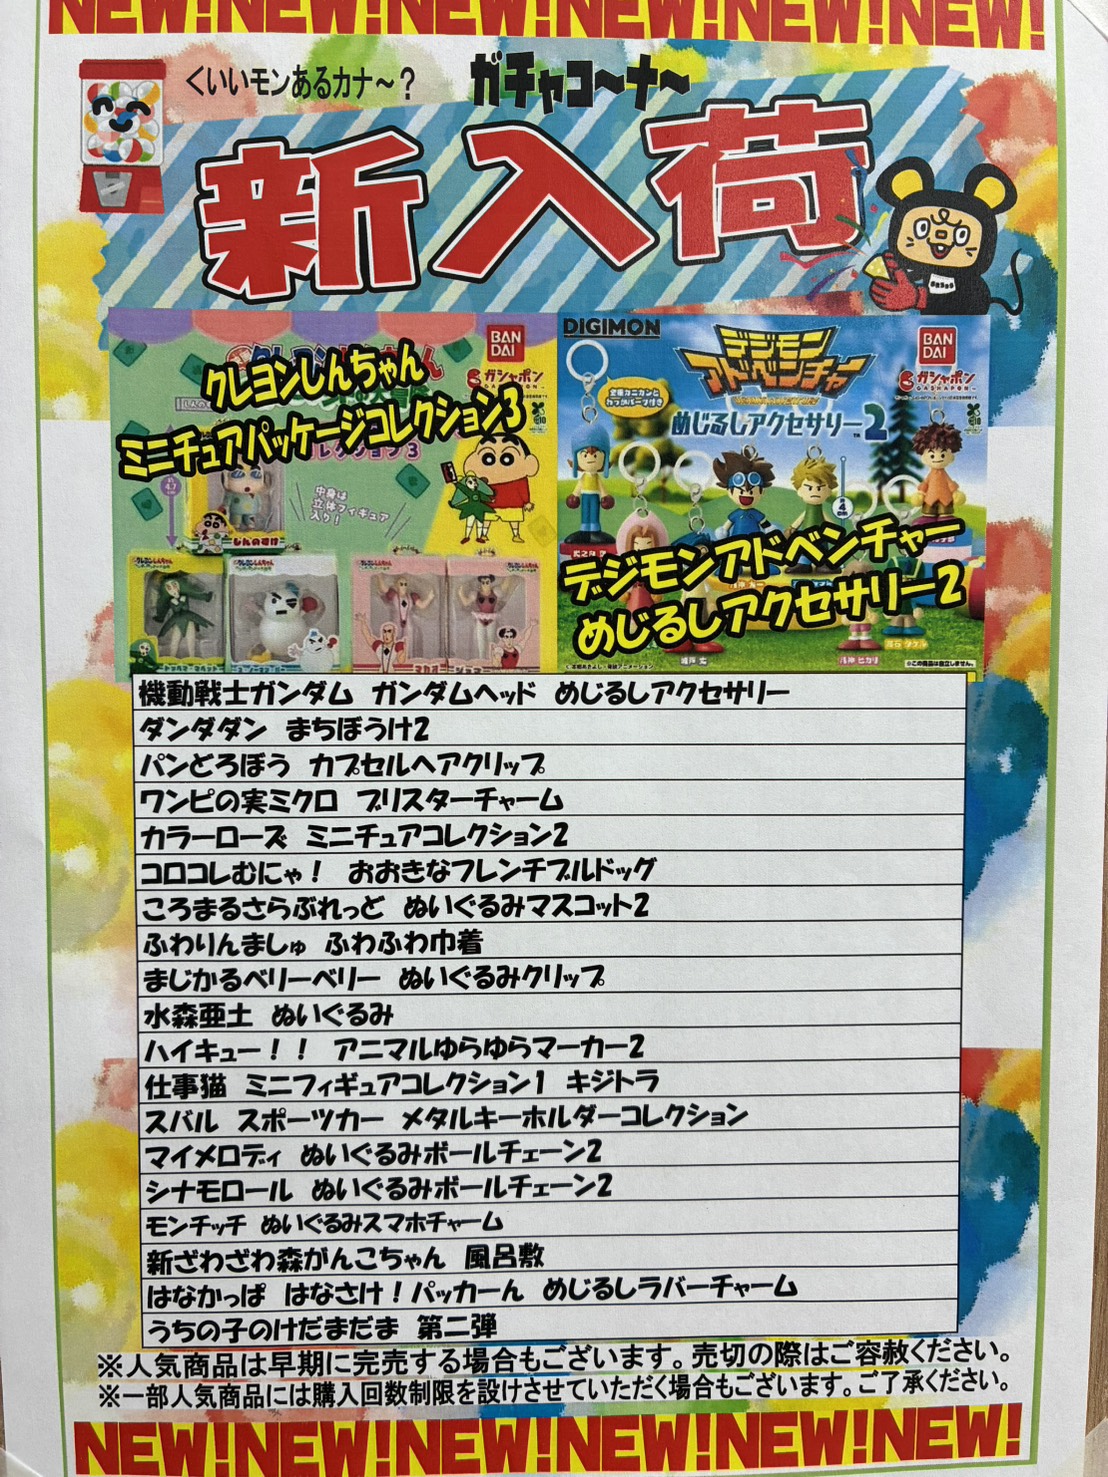 NEW!NEW!NEW!NEW!NEW!NEW!
くいいモンあるカナ～？
ガチャコ～ナ～
新入荷
BAN
DAI
ガシャポン
クレヨンしんちゃん
ミニチュアパッケージコレクション3
約4.7cm
中身は
立体フィギュア
入り！
しんのすけ
DIGIMON
デジモン
アドベンチャー
めじるしアクセサリー2
BAN
DAI
ガシャポン
約4cm
デジモンアドベンチャー
めじるしアクセサリー2
城戸 丈
八神 ヒカリ
※この商品は自立しません。
機動戦士ガンダム ガンダムヘッド めじるしアクセサリー
ダンダダン まちぼうけ2
パンどろぼう カプセルヘアクリップ
ワンピの実ミクロ ブリスターチャーム
カラーローズ ミニチュアコレクション2
コロコレむにゃ！ おおきなフレンチブルドッグ
ころまるさらぶれっど ぬいぐるみマスコット2
ふわりんましゅ ふわふわ巾着
まじかるベリーベリー ぬいぐるみクリップ
水森亜土 ぬいぐるみ
ハイキュー！！ アニマルゆらゆらマーカー2
仕事猫 ミニフィギュアコレクション1 キジトラ
スバル スポーツカー メタルキーホルダーコレクション
マイメロディ ぬいぐるみボールチェーン2
シナモロール ぬいぐるみボールチェーン2
モンチッチ ぬいぐるみスマホチャーム
新ざわざわ森がんこちゃん 風呂敷
はなかっぱ はなさけ！パッカーん めじるしラバーチャーム
うちの子のけだまだま 第二弾
※人気商品は早期に完売する場合もございます。売切の際はご容赦ください。
※一部人気商品には購入回数制限を設けさせていただく場合もございます。ご了承ください。
NEW!NEW!NEW!NEW!NEW!NEW!